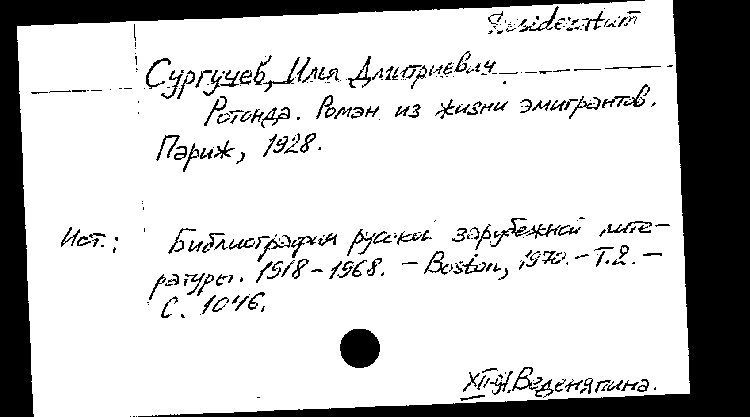 Desideratum
Сургучев, Илья Дмитриевич
Ротонда. Роман из жизни эмигрантов.
Париж, 1928.
Ист.: Библиография русской зарубежной лите-
ратуры. 1918-1968. - Boston, 1970. - Т.2. -
С. 1046.
XII-91. Веденяпина.